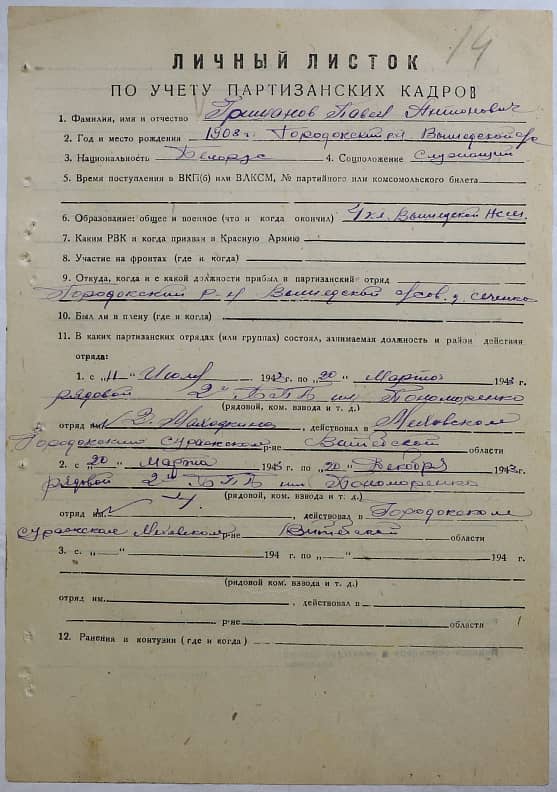 14
ЛИЧНЫЙ ЛИСТОК
ПО УЧЕТУ ПАРТИЗАНСКИХ КАДРОВ
1. Фамилия, имя и отчество Павел Антонович
2. Год и место рождения 1908 г. Городокский
3. Национальность Белорус 4. Соцположение Служащий
5. Время поступления в ВКП(б) или ВЛКСМ, № партийного или комсомольского билета
6. Образование: общее и военное (что и когда окончил) 4 кл.
7. Каким РВК и когда призван в Красную Армию
8. Участие на фронтах (где и когда)
9. Откуда, когда и с какой должности прибыл в партизанский отряд
Городокский р-н
10. Был ли в плену (где и когда)
11. В каких партизанских отрядах (или группах) состоял, занимаемая должность и район действия
отряда:
1. с „11“ 194 г. по „20“ Марта 1943 г.
рядовой 2й БПБ им Пономоренко
(рядовой, ком. взвода и т. д.)
отряд им. , действовал в Меховском
Городокский Суражском р-не области
2. с „20“ Марта 1943 г. по „20“ Декабря 1943 г.
рядовой 2й БПБ им Пономоренко
(рядовой, ком. взвода и т. д.)
отряд им. , действовал в Городокском
Суражском Меховском р-не области
3. с „—“ 194 г. по „—“ 194 г.
(рядовой, ком. взвода и т. д.)
отряд им. , действовал в
р-не области
12. Ранения и контузии (где и когда)